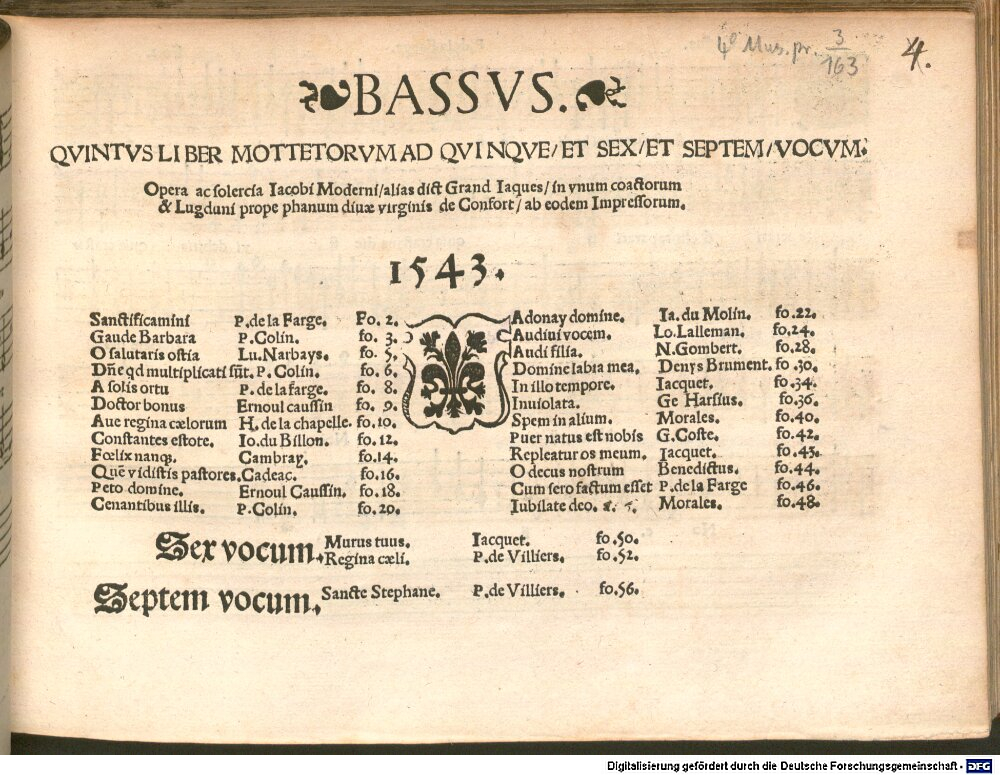 4º Mus. pr. 3/163
4.
BASSVS.
QVINTVS LIBER MOTTETORVM AD QVINQVE/ET SEX/ET SEPTEM/VOCVM.
Opera ac solercia Iacobi Moderni/alias dict Grand Iaques/in vnum coactorum
& Lugduni prope phanum diuæ virginis de Confort/ab eodem Impressorum.
1543.
Sanctificamini P. de la Farge. Fo. 2.
Gaude Barbara P. Colin. fo. 3.
O salutaris ostia Lu. Narbays. fo. 5.
Dñe qd multiplicati sũt. P. Colin. fo. 6.
A solis ortu P. de la farge. fo. 8.
Doctor bonus Ernoul caussin fo. 9.
Aue regina cælorum H. de la chapelle. fo. 10.
Constantes estote. Io. du Billon. fo. 12.
Fœlix nanq. Cambray. fo. 14.
Quẽ vidistis pastores. Cadeac. fo. 16.
Peto domine. Ernoul Caussin. fo. 18.
Cenantibus illis. P. Colin. fo. 20.
Adonay domine. Ia. du Molin. fo. 22.
Audiui vocem. Lo. Lalleman. fo. 24.
Audi filia. N. Gombert. fo. 28.
Domine labia mea. Denys Brument. fo. 30.
In illo tempore. Iacquet. fo. 34.
Inuiolata. Ge Harsius. fo. 36.
Spem in alium. Morales. fo. 40.
Puer natus est nobis G. Coste. fo. 42.
Repleatur os meum. Iacquet. fo. 43.
O decus nostrum Benedictus. fo. 44.
Cum sero factum esset P. de la Farge fo. 46.
Iubilate deo. Morales. fo. 48.
Sex vocum. Murus tuus. Iacquet. fo. 50.
Regina cæli. P. de Villiers. fo. 52.
Septem vocum. Sancte Stephane. P. de Villiers. fo. 56.
Digitalisierung gefördert durch die Deutsche Forschungsgemeinschaft - DFG